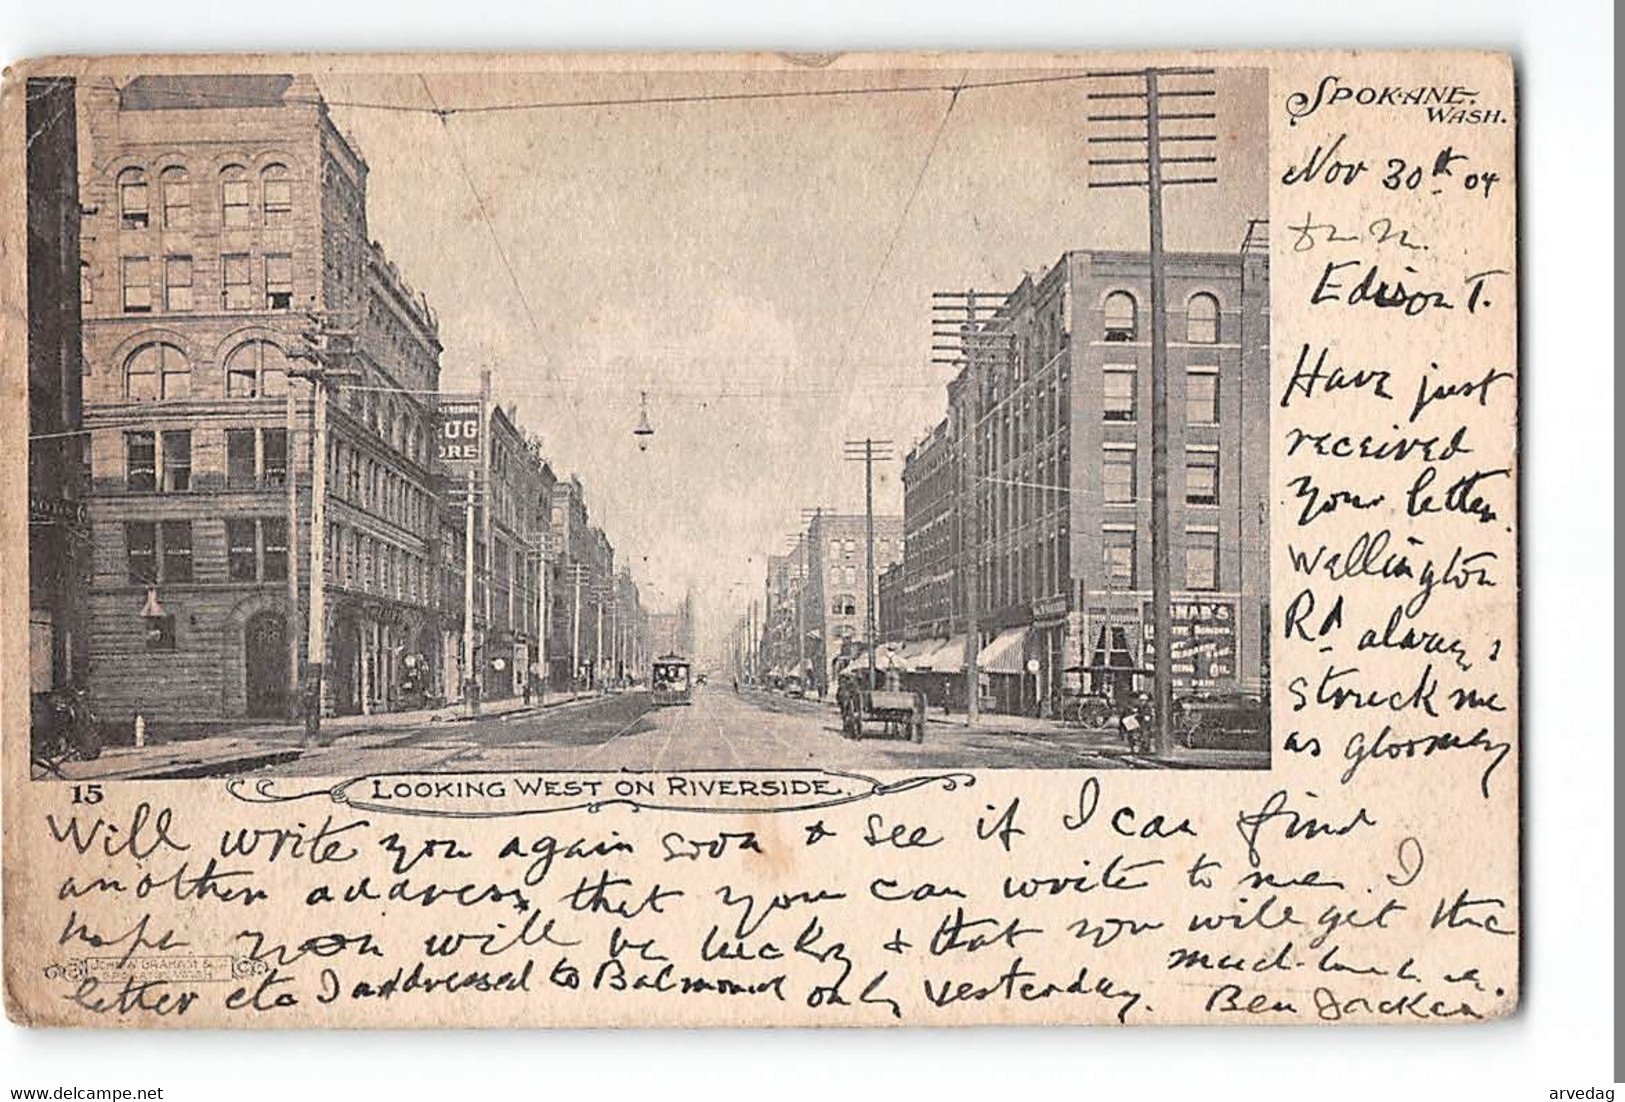 SPOKANE,
WASH.
Nov 30th 04
Edison T.
Have just
received
your letter.
Wellington
Rd always
struck me
as gloomey
UG
ORE
NAD'S
OIL
15
LOOKING WEST ON RIVERSIDE.
Will write you again soon & see if I can find
another address that you can write to me. I
hope you will be lucky & that you will get the
letter etc I addressed to Balmoral only yesterday.
much
Ben
JOHN W. GRAHAM & CO.
SPOKANE, WASH.
www.delcampe.net
arvedag